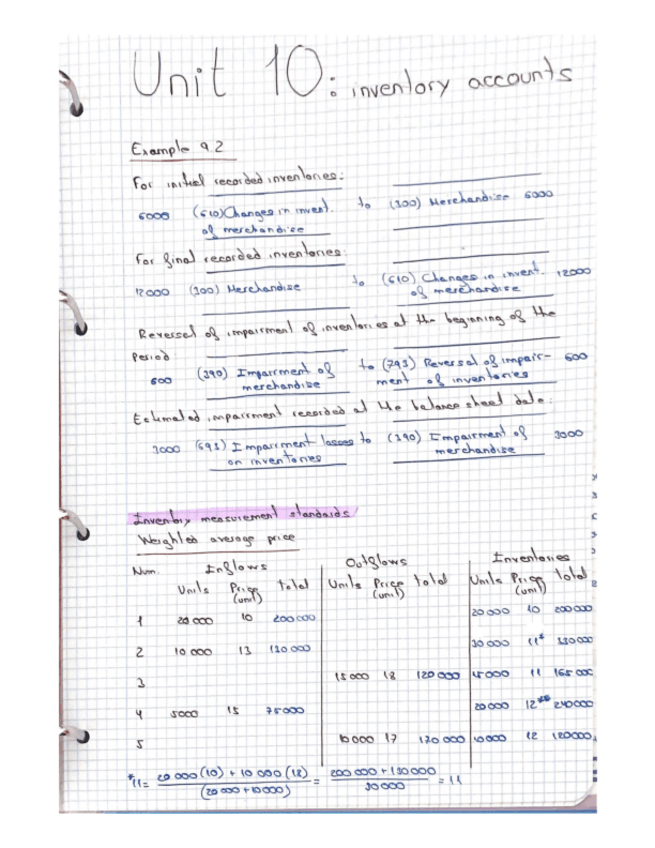 Unit 10: inventory accounts
Example 9.2
For initial recorded inventories:
6000 (610) Changes in invent. to (300) Merchandise 6000
of merchandise
For final recorded inventories:
12000 (300) Merchandise to (610) Changes in invent. 12000
of merchandise
Reversel of impairment of inventories at the beginning of the
Period
600 (390) Impairment of to (793) Reversal of impair- 600
merchandise ment of inventories
Estimated impairment recorded at the balance sheet date:
3000 (693) Impairment losses to (390) Impairment of 3000
on inventories merchandise
Inventory measurement standards
Weighted average price
Num. Inflows Outflows Inventories
Units Price (unit) total Units Price (unit) total Units Price (unit) total
20 000 10 200 000
1 20 000 10 200 000
30 000 11* 330 000
2 10 000 13 130 000
3 15 000 18 15 000 11 165 000
20 000 12** 240 000
4 5000 15 75 000
5 10 000 17 170 000 10 000 12 120 000
*11 = 20 000 (10) + 10 000 (13) = 200 000 + 130 000 = 11
(20 000 + 10 000) 30 000